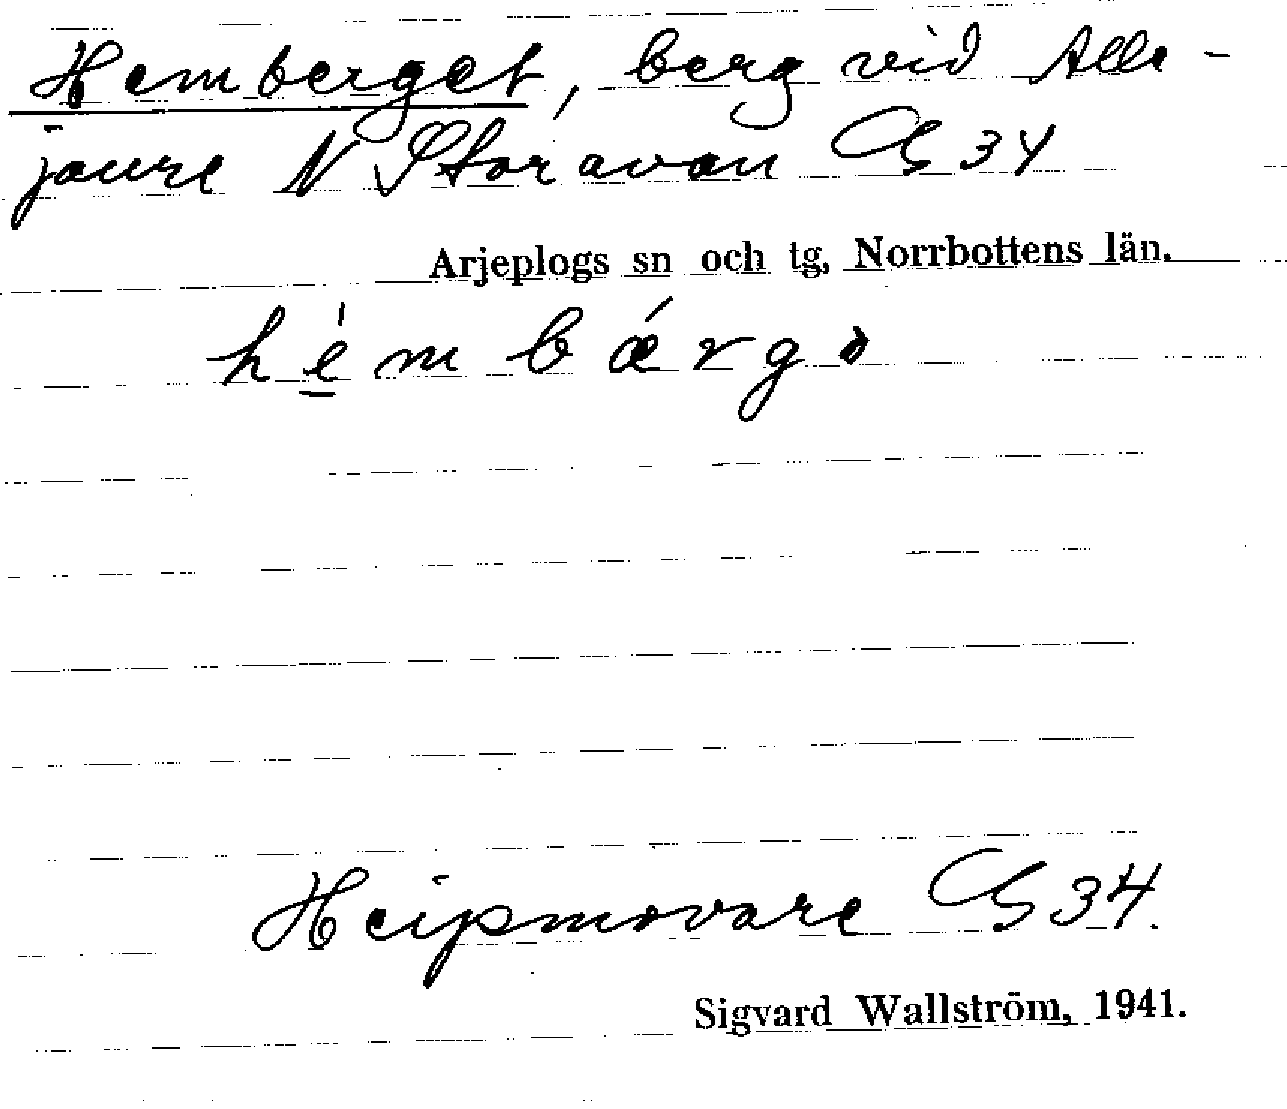 Hemberget, berg vid Alle-
jaure N Storavan G 34
Arjeplogs sn och tg, Norrbottens län.
hémbǽrgə
Heipmovare G 34.
Sigvard Wallström, 1941.